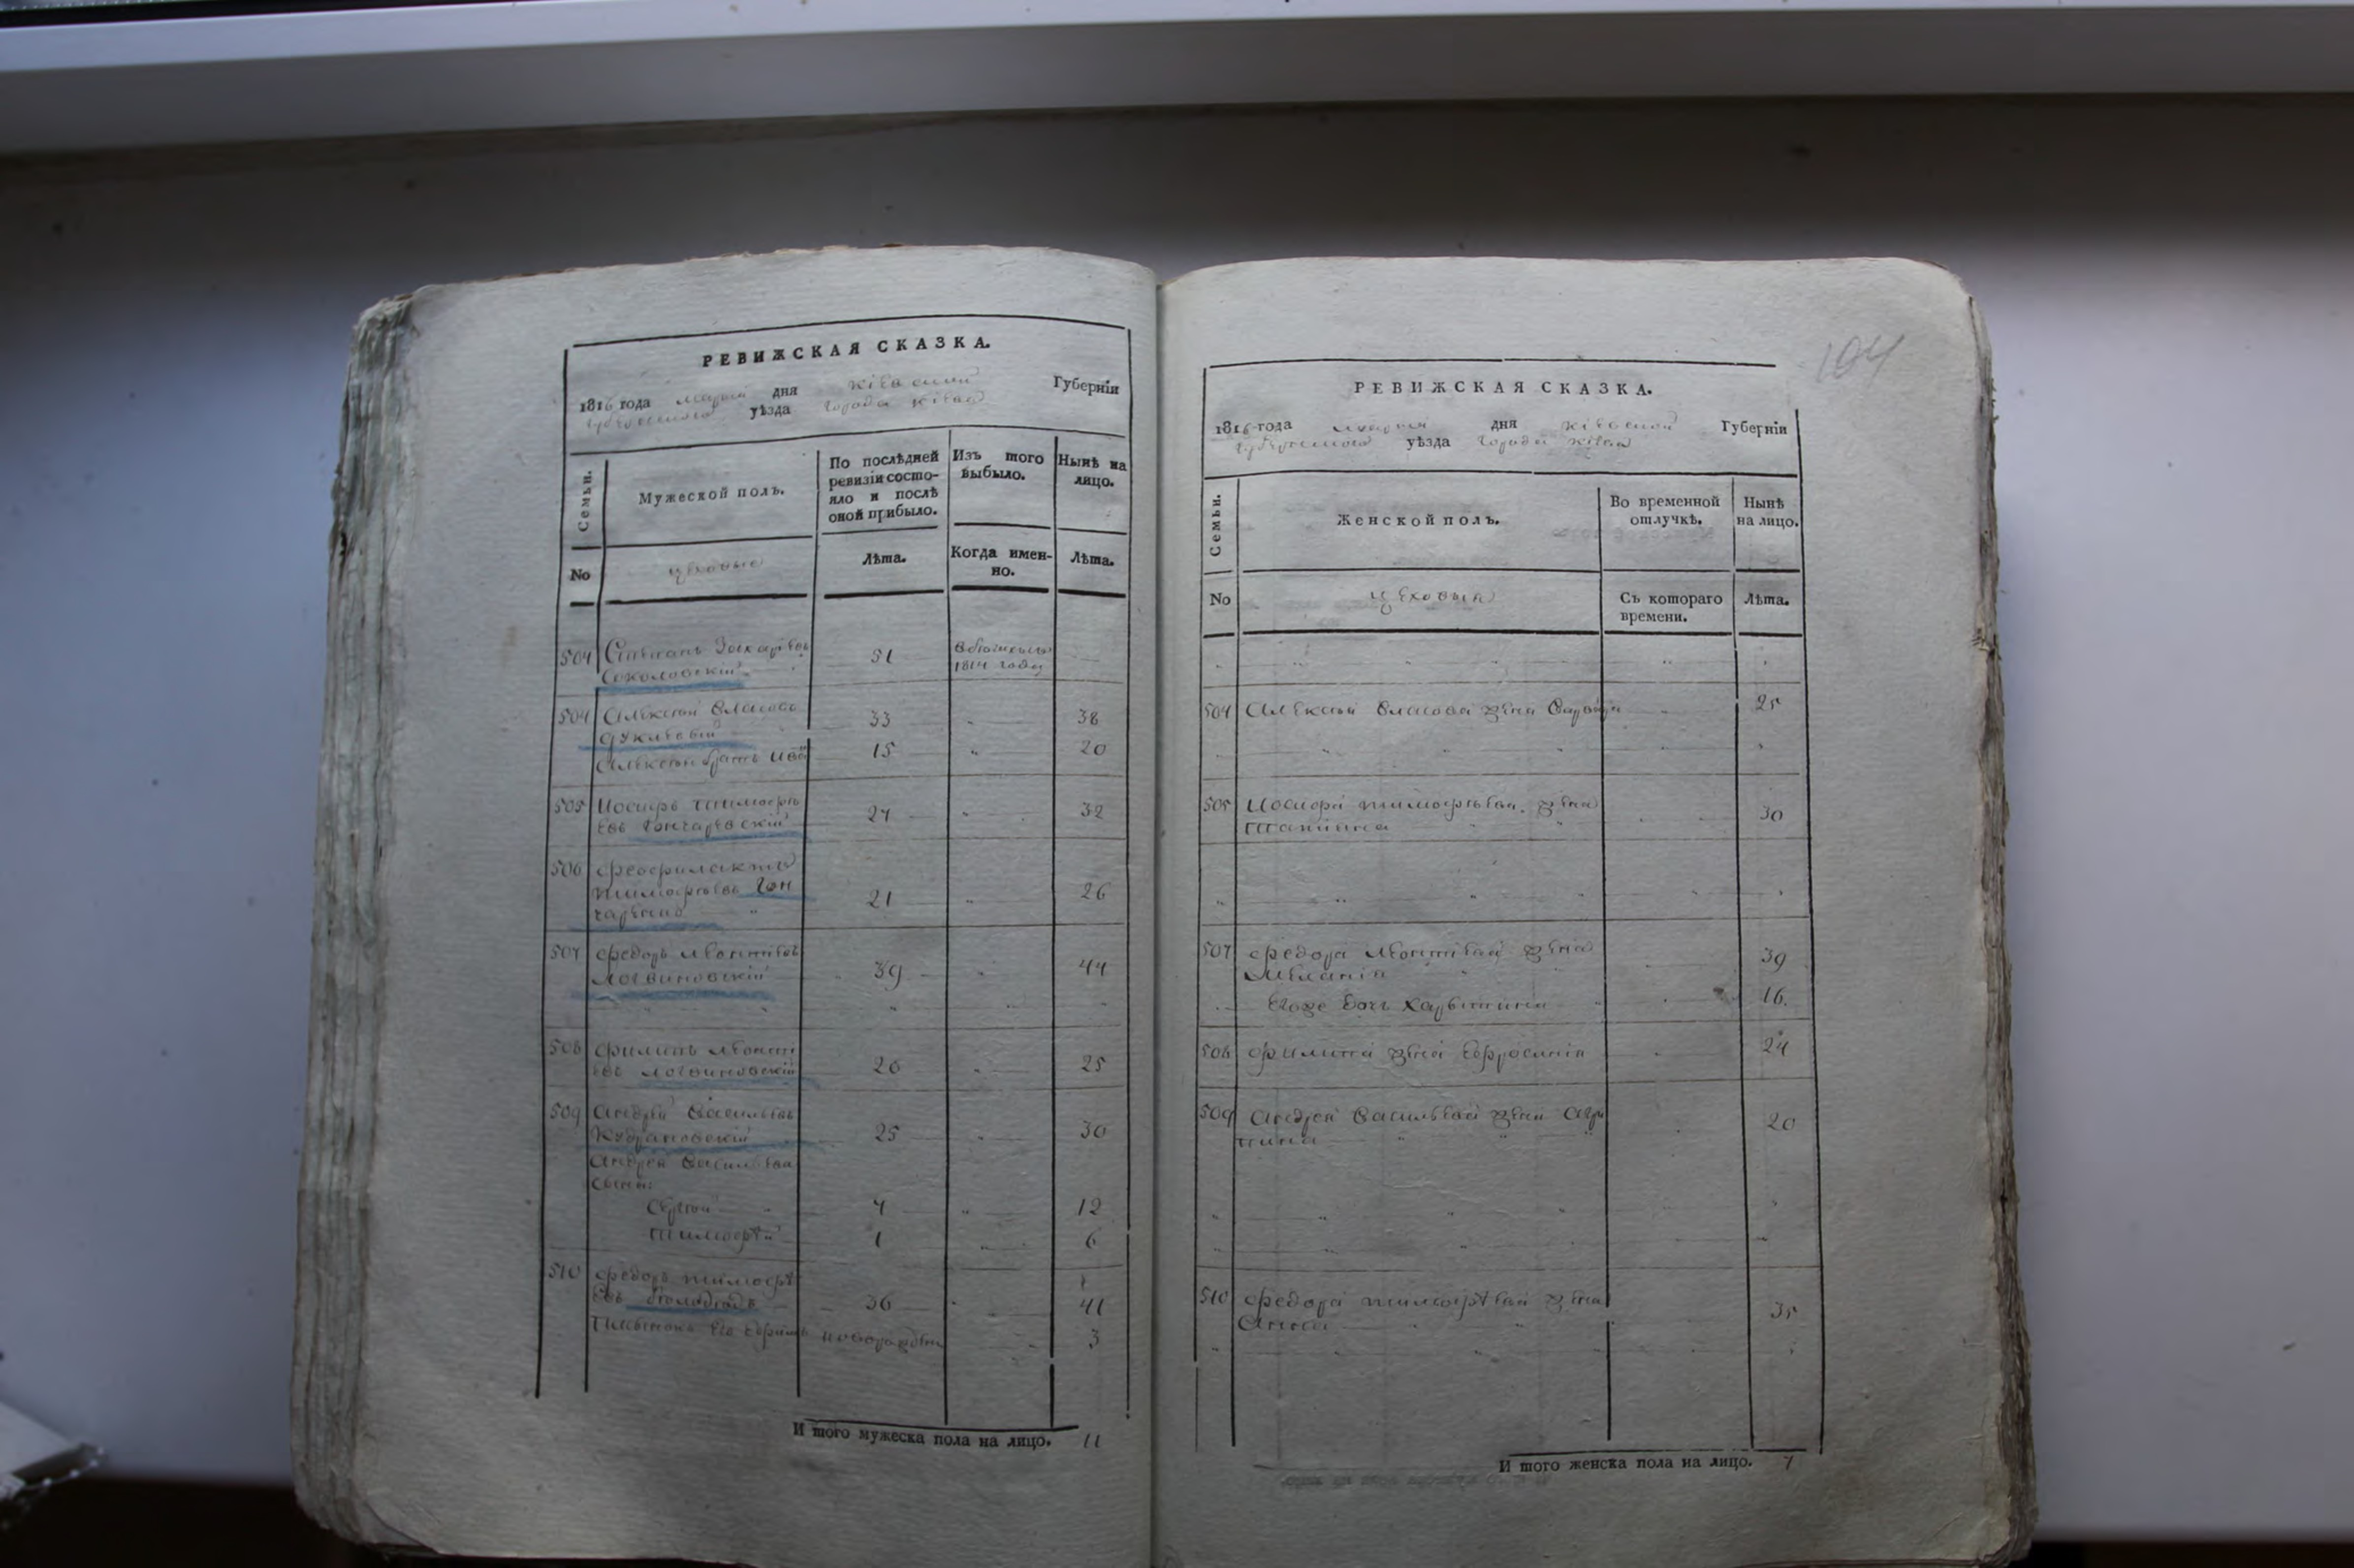 РЕВИЖСКАЯ СКАЗКА.
1816 года марта дня Кіевской Губерніи
уѣзда города Кіева
Семьи.
Мужеской полъ.
По послѣдней ревизіи состо-
яло и послѣ
оной прибыло.
Изъ того
выбыло.
Нынѣ на
лицо.
No
цеховые
Лѣта.
Когда имен-
но.
Лѣта.
504 Степанъ Захарьевъ
Соколовскій 51 1814 году
504 Алексѣй Власовъ 33 38
Алексѣя братъ 15 20
505 Іосифъ Тимофѣ
евъ Гончаревскій 27 32
506 Феофилактъ
Тимофѣевъ Гон 21 26
507 Федоръ Леонтіевъ
Логвиновскій 39 44
508 Филипъ Леонті
евъ Логвиновскій 20 25
509 Андрей Васильевъ
25 30
Андрея Васильева
сына:
Сергѣй 7 12
Тимофѣй 1 6
510 Федоръ Тимофѣ
евъ 36 41
его 3
И того мужеска пола на лицо. 11
104
РЕВИЖСКАЯ СКАЗКА.
1816 года марта дня Кіевской Губерніи
уѣзда города Кіева
Семьи.
Женской полъ.
Во временной
отлучкѣ.
Нынѣ
на лицо.
No
цеховыя
Съ котораго
времени.
Лѣта.
504 Алексѣя Власова жена 25
505 Іосифа Тимофѣева жена
Татіяна 30
507 Федора Леонтіева жена
Меланія 39
Егоже дочь Харитина 16.
508 Филипа жена Евфросинія 24
509 Андрея Васильева жена 20
510 Федора Тимофѣева жена
Анна 35
И того женска пола на лицо. 7